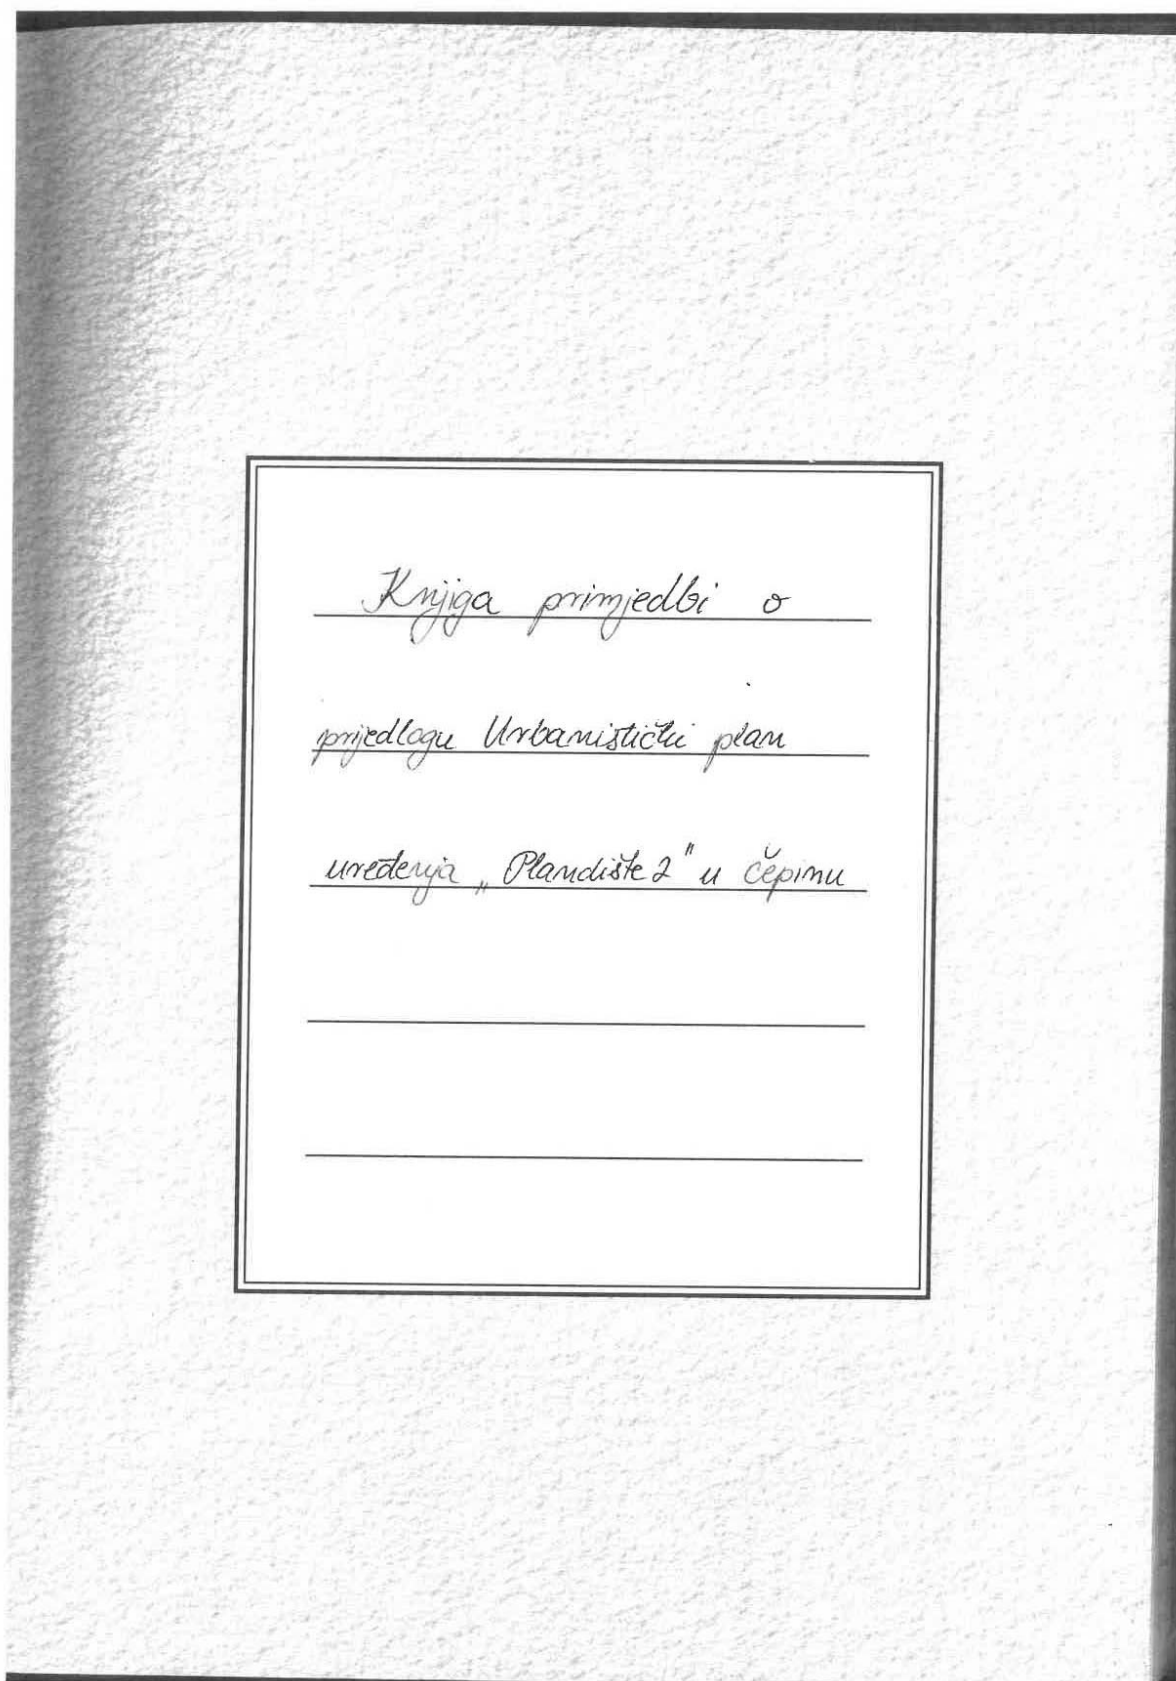 Knjiga primjedbi o
prijedlogu Urbanistički plan
uređenja „Plandište 2" u Čepinu